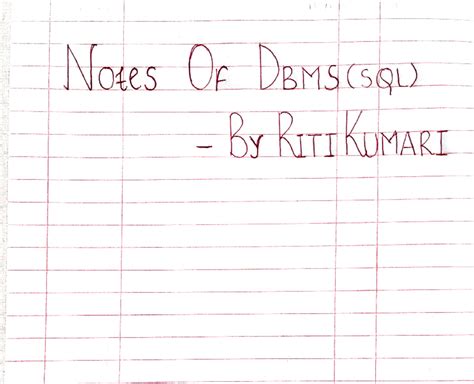 Notes Of DBMS(SQL)
- By Riti Kumari